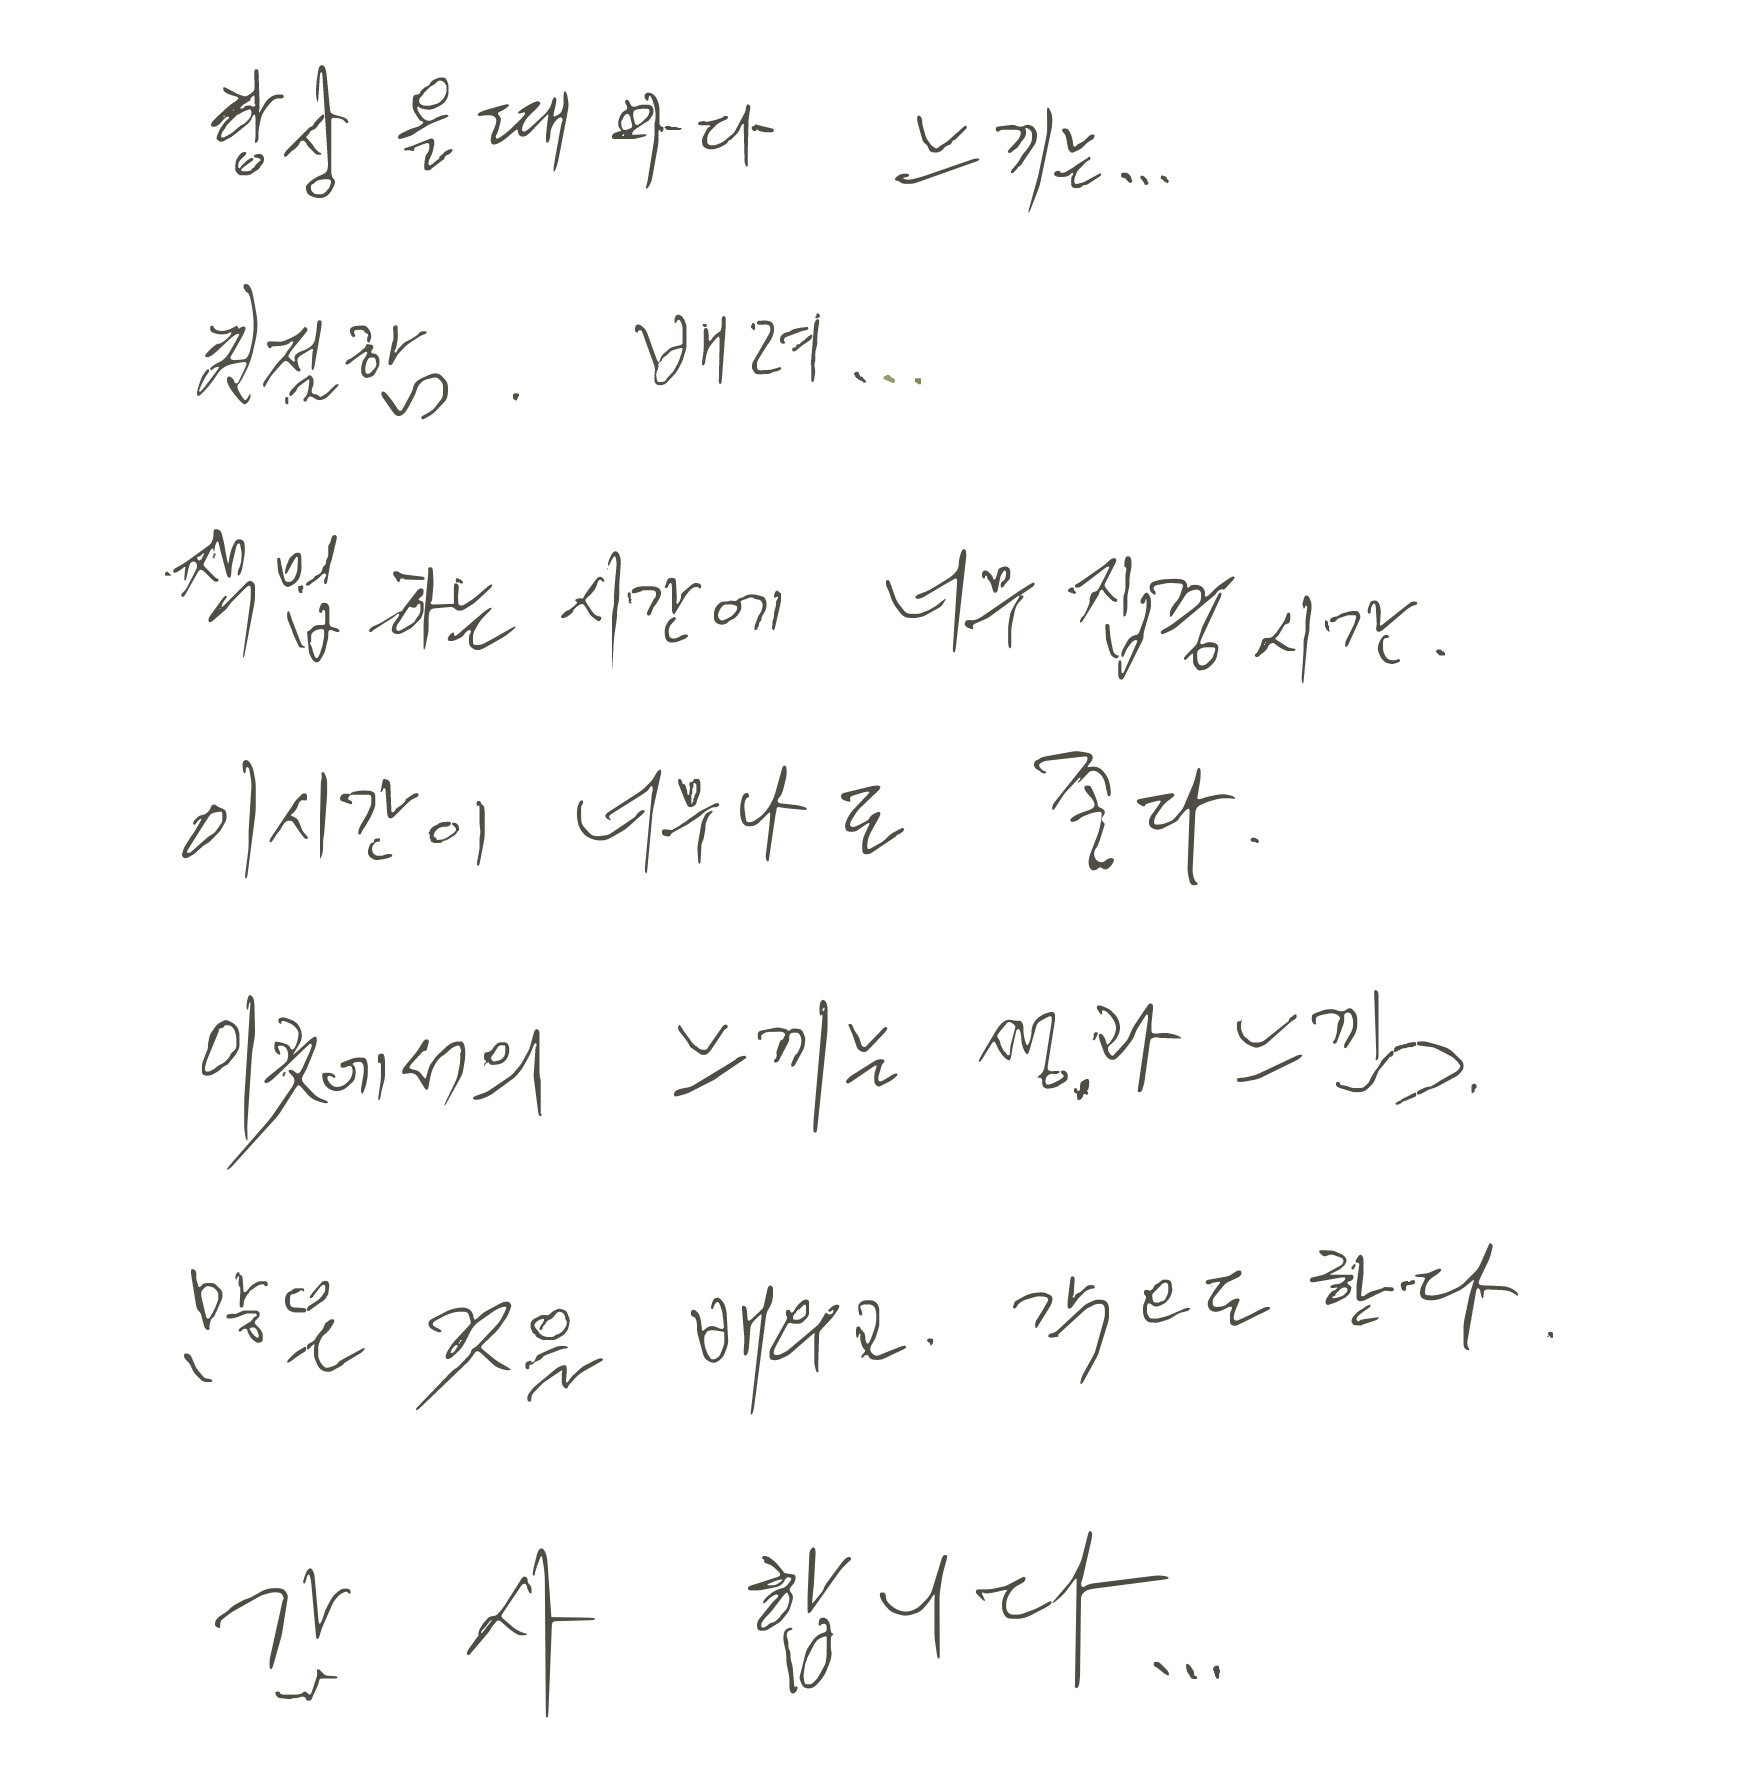 항상 올때 마다 느끼는...
친절함. 배려...
작업 하는 시간에 너무 집중 시간.
이시간이 너무나도 좋다.
이곳에서의 느끼는 생각과 느낌.
많은 것을 배우고. 각오도 한다.
감사합니다...